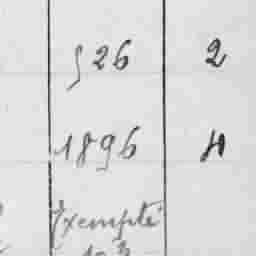 526 2
1896 4
Exempté